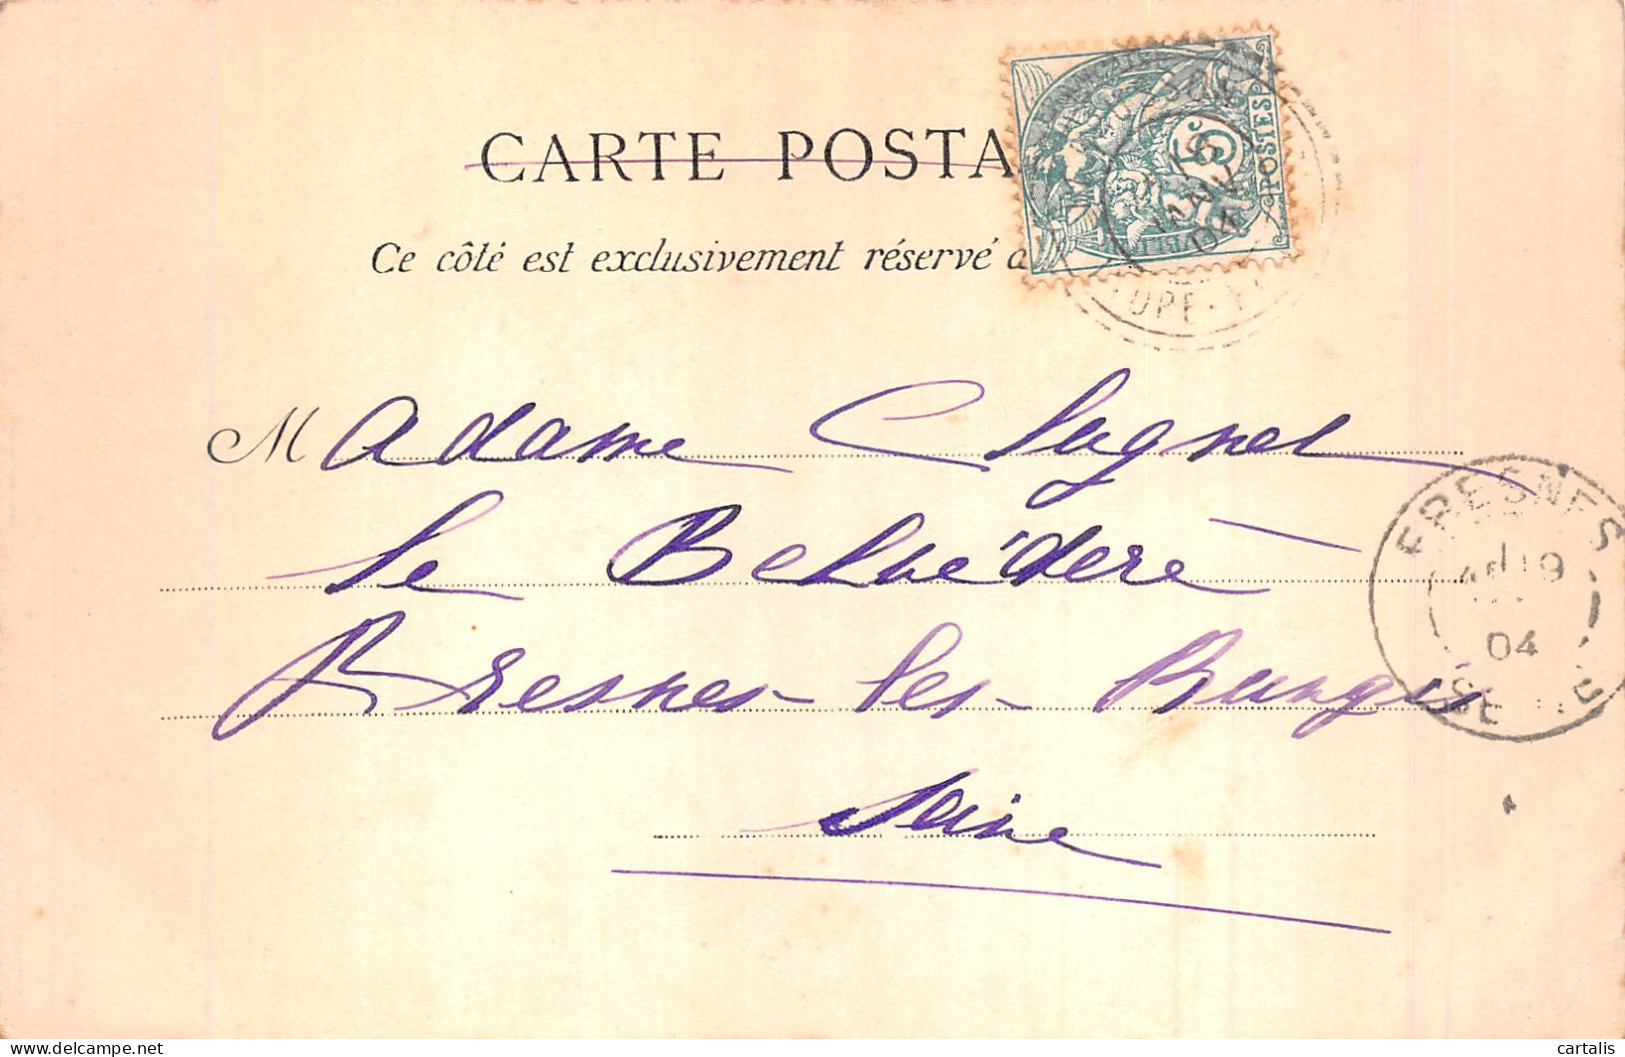 CARTE POSTA
Ce côté est exclusivement réservé a
5
POSTES
04
Madame Clugnet
le Belvédère
Fresnes-les-Rungis
Seine
FRESNES
19
04
SEINE
www.delcampe.net
cartalis